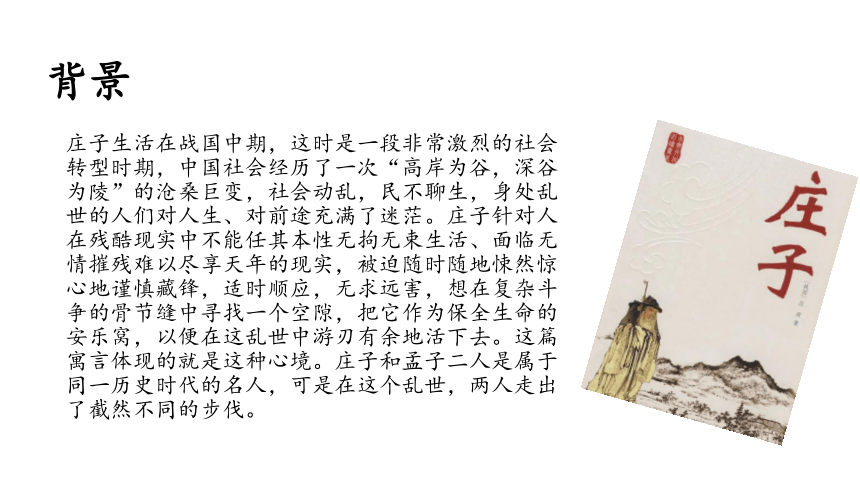 背景
庄子生活在战国中期，这时是一段非常激烈的社会
转型时期，中国社会经历了一次“高岸为谷，深谷
为陵”的沧桑巨变，社会动乱，民不聊生，身处乱
世的人们对人生、对前途充满了迷茫。庄子针对人
在残酷现实中不能任其本性无拘无束生活、面临无
情摧残难以尽享天年的现实，被迫随时随地悚然惊
心地谨慎藏锋，适时顺应，无求远害，想在复杂斗
争的骨节缝中寻找一个空隙，把它作为保全生命的
安乐窝，以便在这乱世中游刃有余地活下去。这篇
寓言体现的就是这种心境。庄子和孟子二人是属于
同一历史时代的名人，可是在这个乱世，两人走出
了截然不同的步伐。
庄子